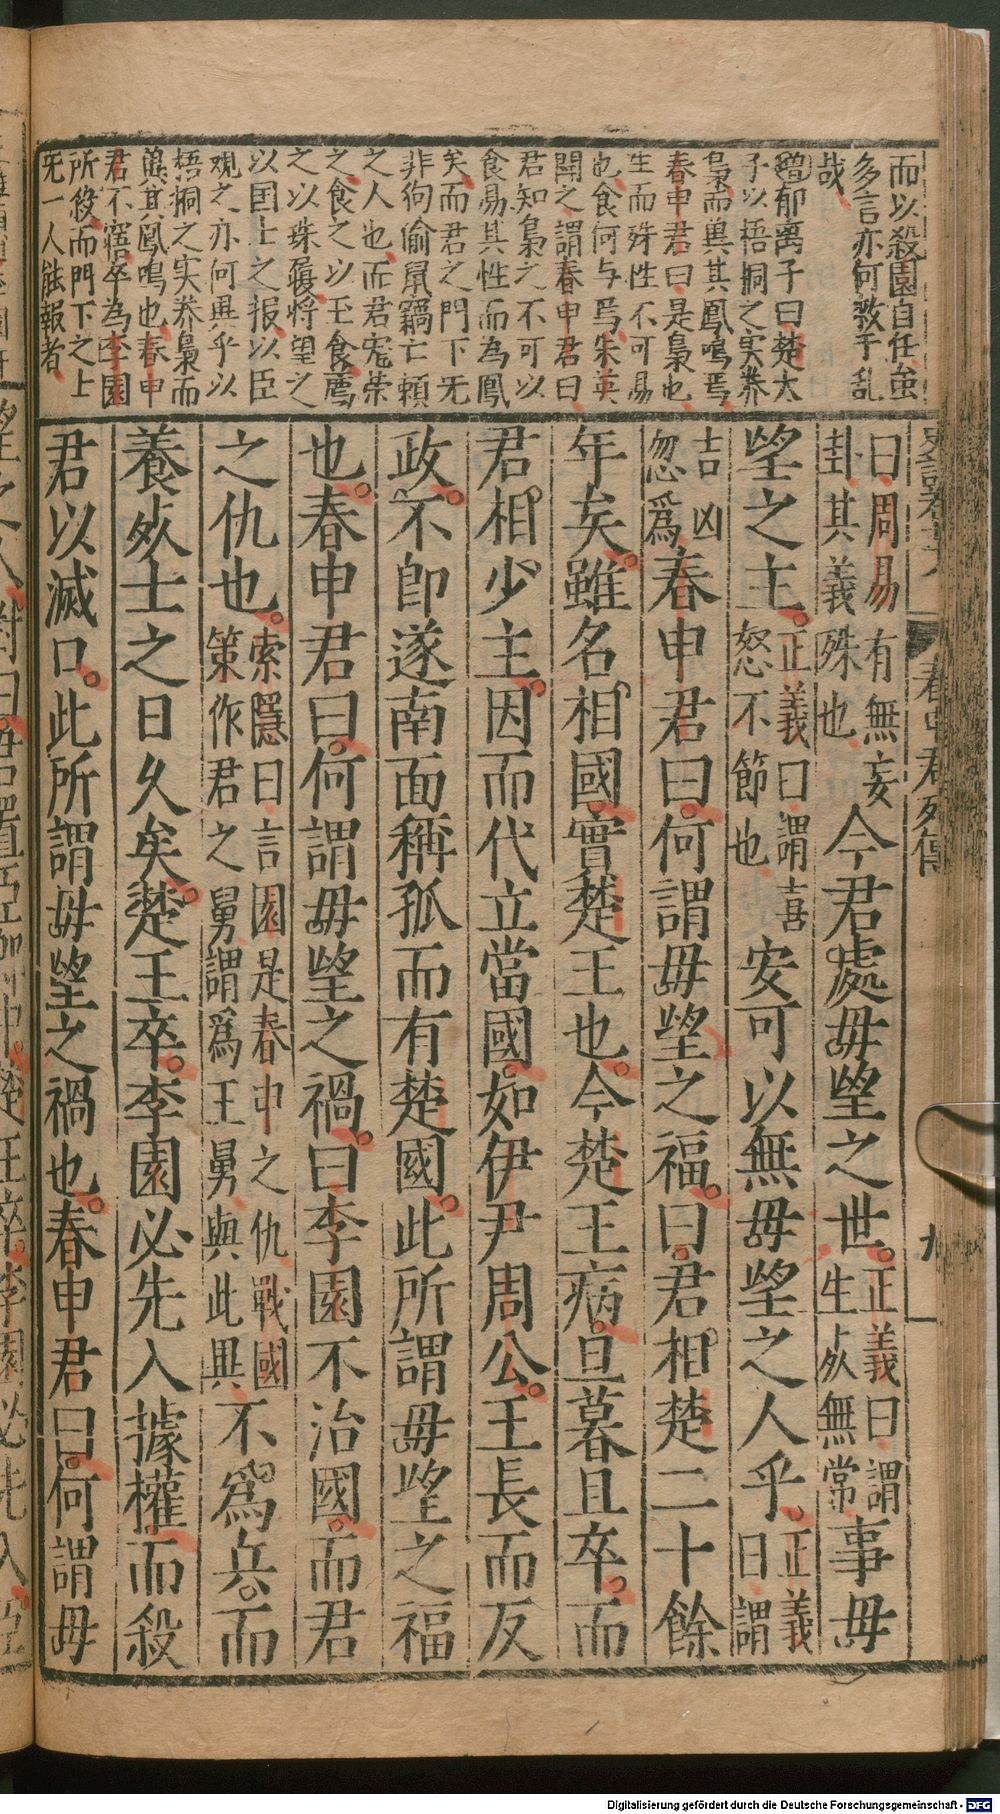 而以殺園自任虽
多言亦何救于乱
哉
郁离子曰楚太
子以梧桐之实养
梟而兾其鳳鳴焉
春申君曰是梟也
生而殊性不可易
也食何与焉朱英
聞之謂春申君曰
君知梟之不可以
食易其性而為鳳
矣而君之門下无
非狗偷鼠竊亡頼
之人也而君宠荣
之食之以玉食薦
之以珠履将望之
以国士之报以臣
观之亦何異乎以
梧桐之实养梟而
兾其鳳鳴也春申
君不寤卒為李園
所殺而門下之士
无一人能報者
春申君列傳
九
曰周易有無妄
卦其義殊也
今君處毋望之世
正義曰謂
生死無常
事毋
望之主
正義曰謂喜
怒不節也
安可以無毋望之人乎
正義
曰謂
吉凶
忽爲
春申君曰何謂毋望之福曰君相楚二十餘
年矣雖名相國實楚王也今楚王病旦暮且卒而
君相少主因而代立當國如伊尹周公王長而反
政不即遂南面稱孤而有楚國此所謂毋望之福
也春申君曰何謂毋望之禍曰李園不治國而君
之仇也
索隱曰言園是春申之仇戰國
策作君之舅謂爲王舅與此異
不爲兵而
養死士之日久矣楚王卒李園必先入據權而殺
君以滅口此所謂毋望之禍也春申君曰何謂毋
Digitalisierung gefördert durch die Deutsche Forschungsgemeinschaft - DFG